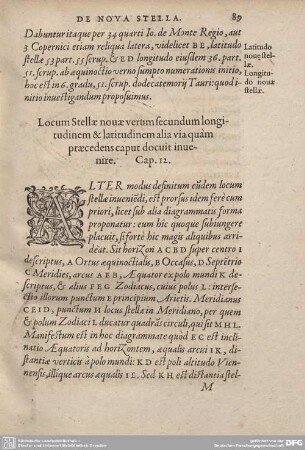 DE NOVA STELLA. 89
Dabuntur itaque per 34 quarti Io. de Monte Regio, aut
3 Copernici etiam reliqua latera, videlicet BE, latitudo
stellæ 53 part. 55 scrup. & ED longitudo eiusdem 36. part.
51. scrup. ab æquinoctio verno sumpto numerationis initio,
hoc est in 6. gradu, 51. scrup. dodecatemorij Tauri: quod i
nitio inuestigandum proposuimus.
Latitudo
nouæ stel-
læ.
Longitu-
do nouæ
stellæ.
Locum Stellæ nouæ verum secundum longi-
tudinem & latitudinem alia via quàm
præcedens caput docuit inue-
nire. Cap. 12.
ALTER modus definitum eiusdem locum
stellæ inueniēdi, est prorsus idem ferè cum
priori, licet sub alia diagrammatis forma
proponatur: eum hic quoque subiungere
placuit, si fortè hic magis aliquibus arri-
deāt. Sit horizon ACBD super centro I
descriptus, A Ortus æquinoctialis, B Occasus, D Septētrio
C Meridies, arcus AEB, Æquator ex polo mundi K de-
scriptus, & alius FEG Zodiacus, cuius polus L: inter-
sectio illorum punctum E principium Arietis. Meridianus
CEID, punctum H locus stellæ in Meridiano, per quem
& polum Zodiaci L ducatur quadrās circuli, qui sit MHL.
Manifestum est in hoc diagrammate quod EC est incli-
natio Æquatoris ad horizontem, æqualis arcui IK, di-
stantiæ verticis à polo mundi: KD est poli altitudo Vien-
nensis, illique arcus æqualis IE. Sed KH est distantia stel-
M